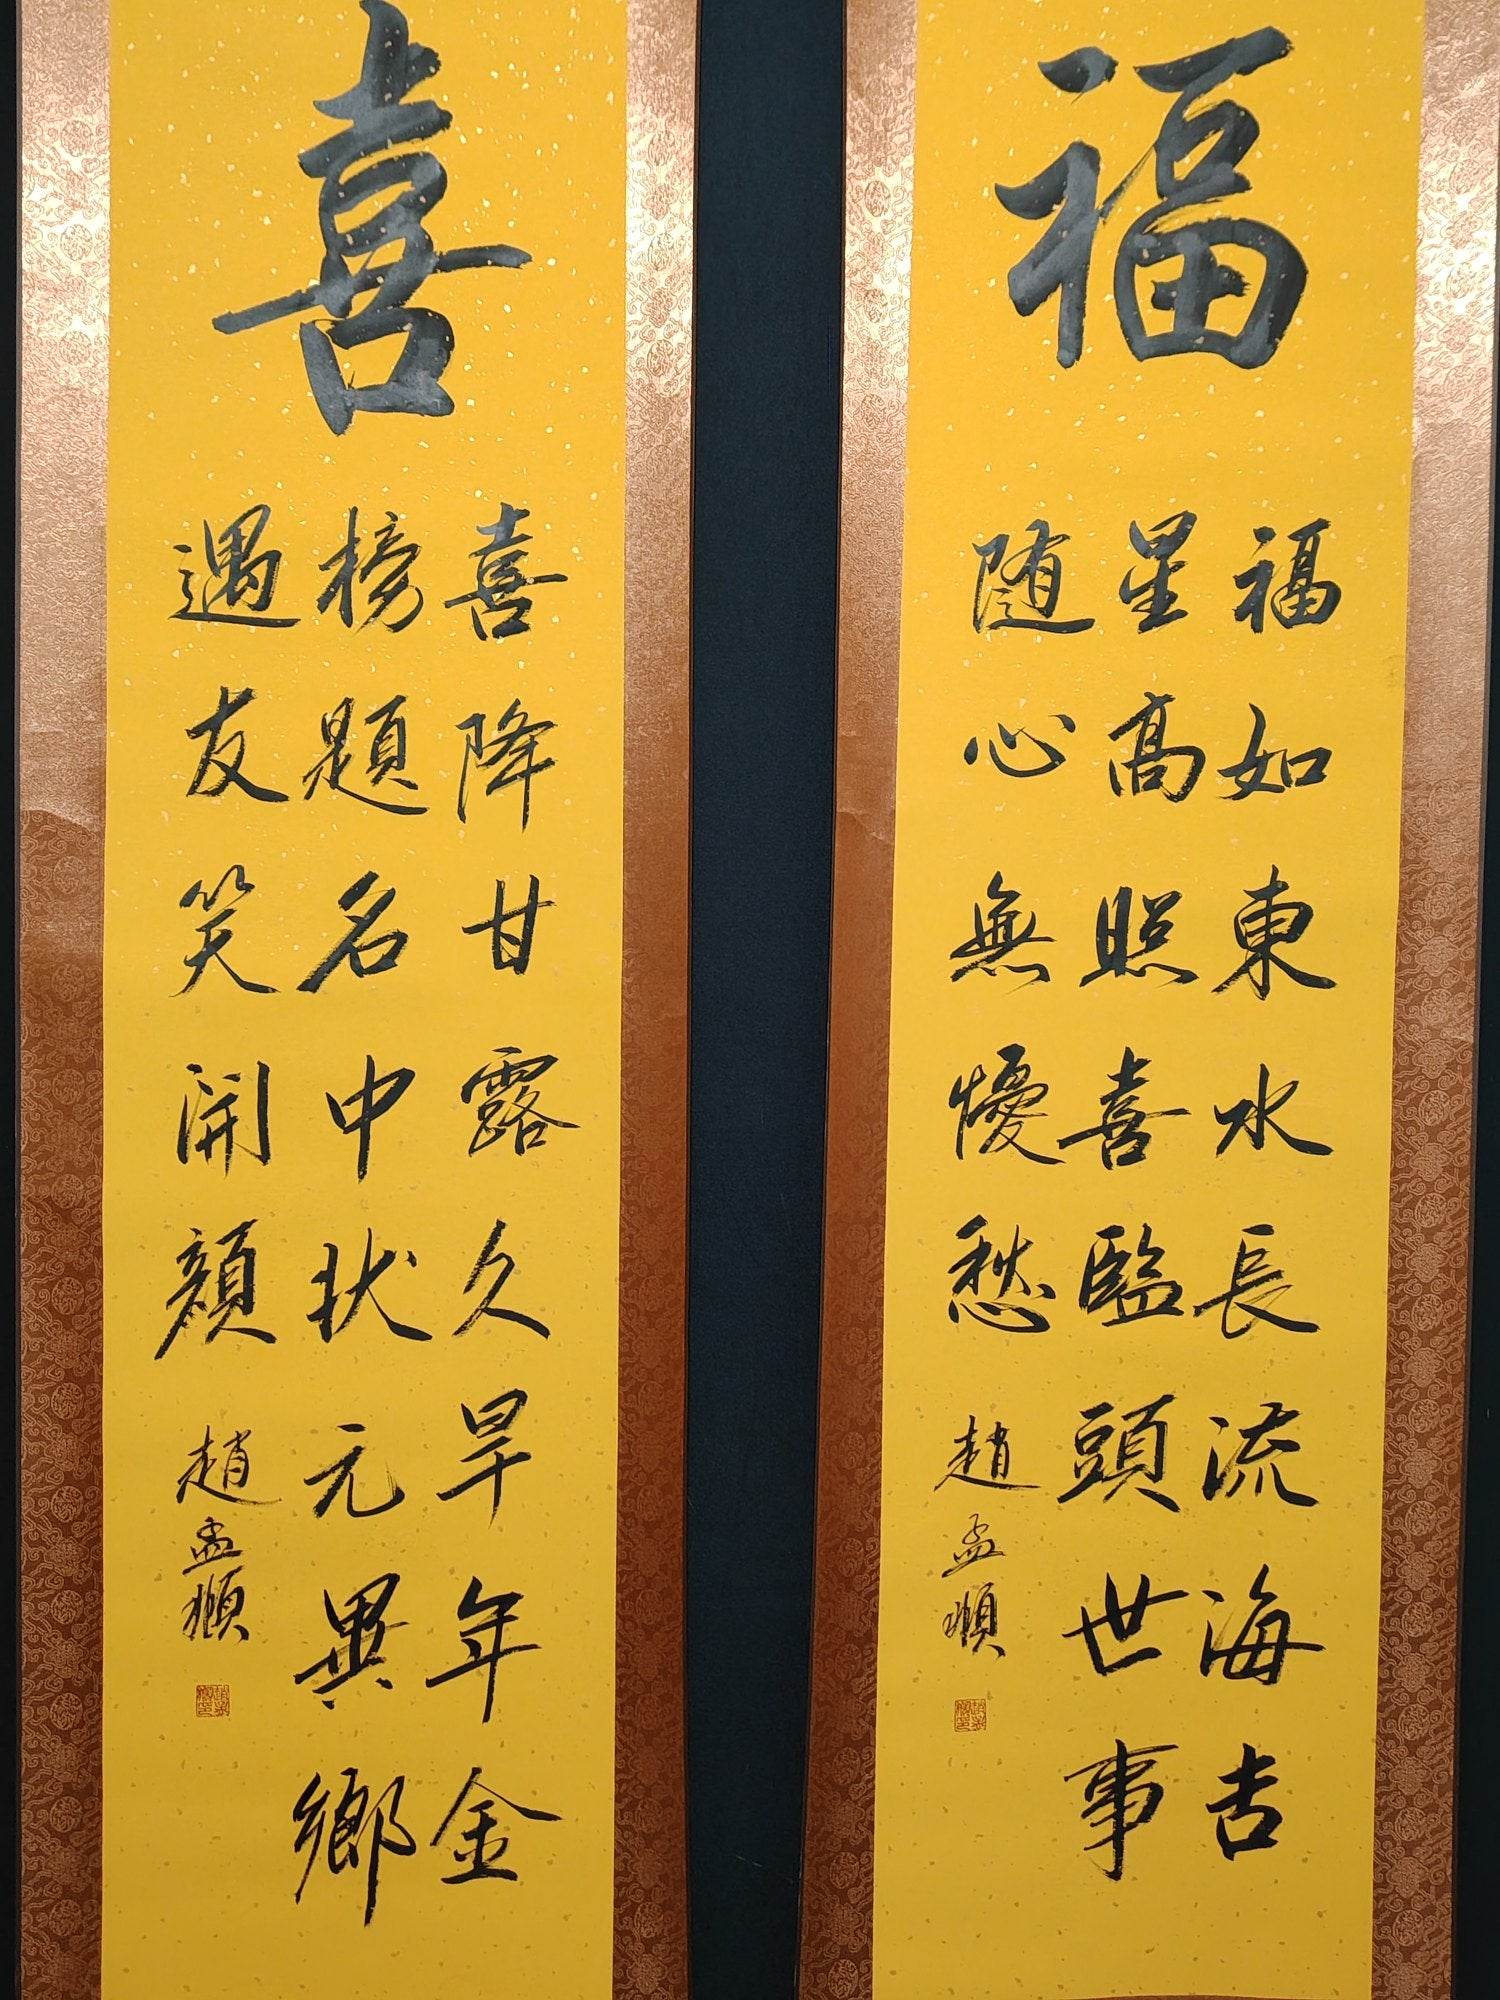 福
福如東水長流海吉
星高照喜臨頭世事
随心無憂愁
趙孟頫
喜
喜降甘露久旱年金
榜題名中状元異鄉
遇友笑開顏
趙孟頫